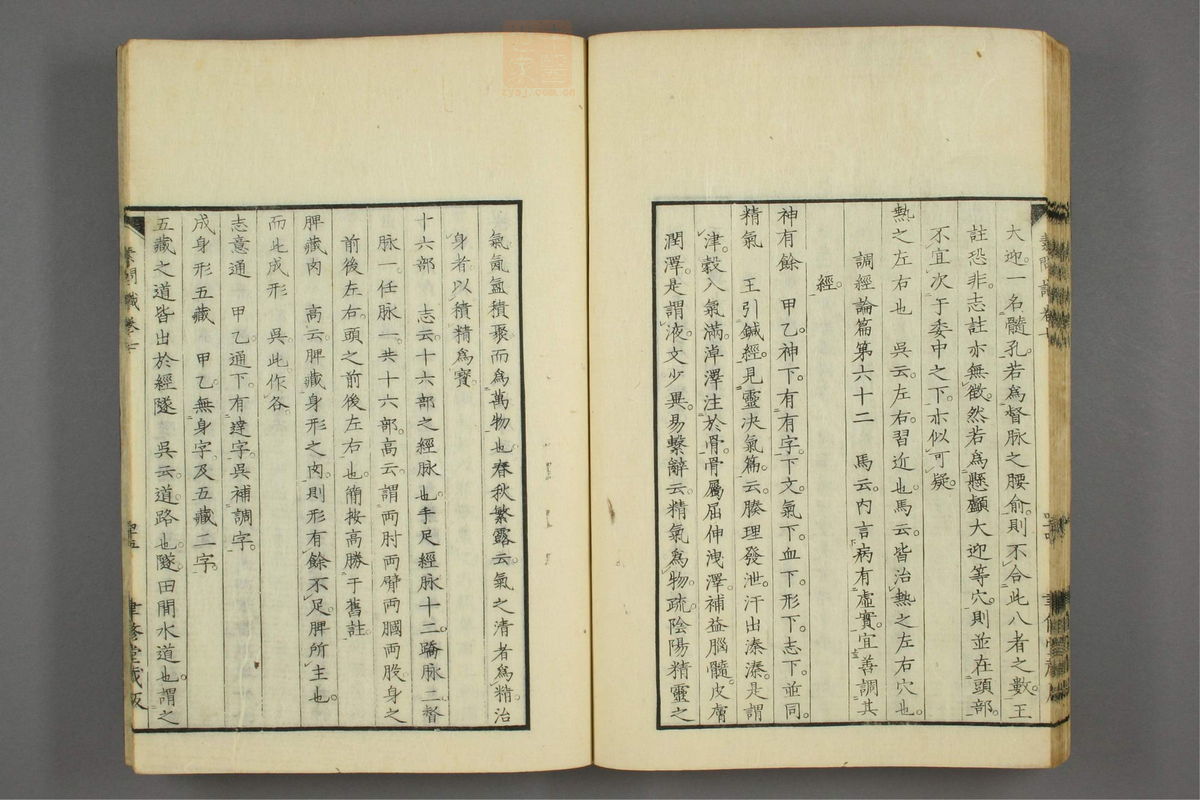 大迎一名髓孔若爲督脉之腰俞則不合此八者之數王
註恐非志註亦無徵然若爲懸顱大迎等穴則並在頭部
不宜次于委中之下亦似可疑
熱之左右也　吳云左右習近也馬云皆治熱之左右穴也
調經論篇第六十二　馬云内言病有虛實宜善調其
經
神有餘　甲乙神下有有字下文氣下血下形下志下並同
精氣　王引鍼經見靈决氣篇云腠理發泄汗出溱溱是謂
津穀入氣滿淖澤注於骨骨屬屈伸洩澤補益腦髓皮膚
潤澤是謂液文少異易繫辭云精氣爲物疏陰陽精靈之
氣氤氳積聚而爲萬物也春秋繁露云氣之清者爲精治
身者以積精爲寶
十六部　志云十六部之經脉也手足經脉十二蹻脉二督
脉一任脉一共十六部高云謂兩肘兩臂兩膕兩股身之
前後左右頭之前後左右也簡按高勝于舊註
脾藏肉　高云脾藏身形之肉則形有餘不足脾所主也
而此成形　吳此作各
志意通　甲乙通下有達字吳補調字
成身形五藏　甲乙無身字及五藏二字
五藏之道皆出於經隧　吳云道路也隧田間水道也謂之
素問識卷七
聿修堂藏版